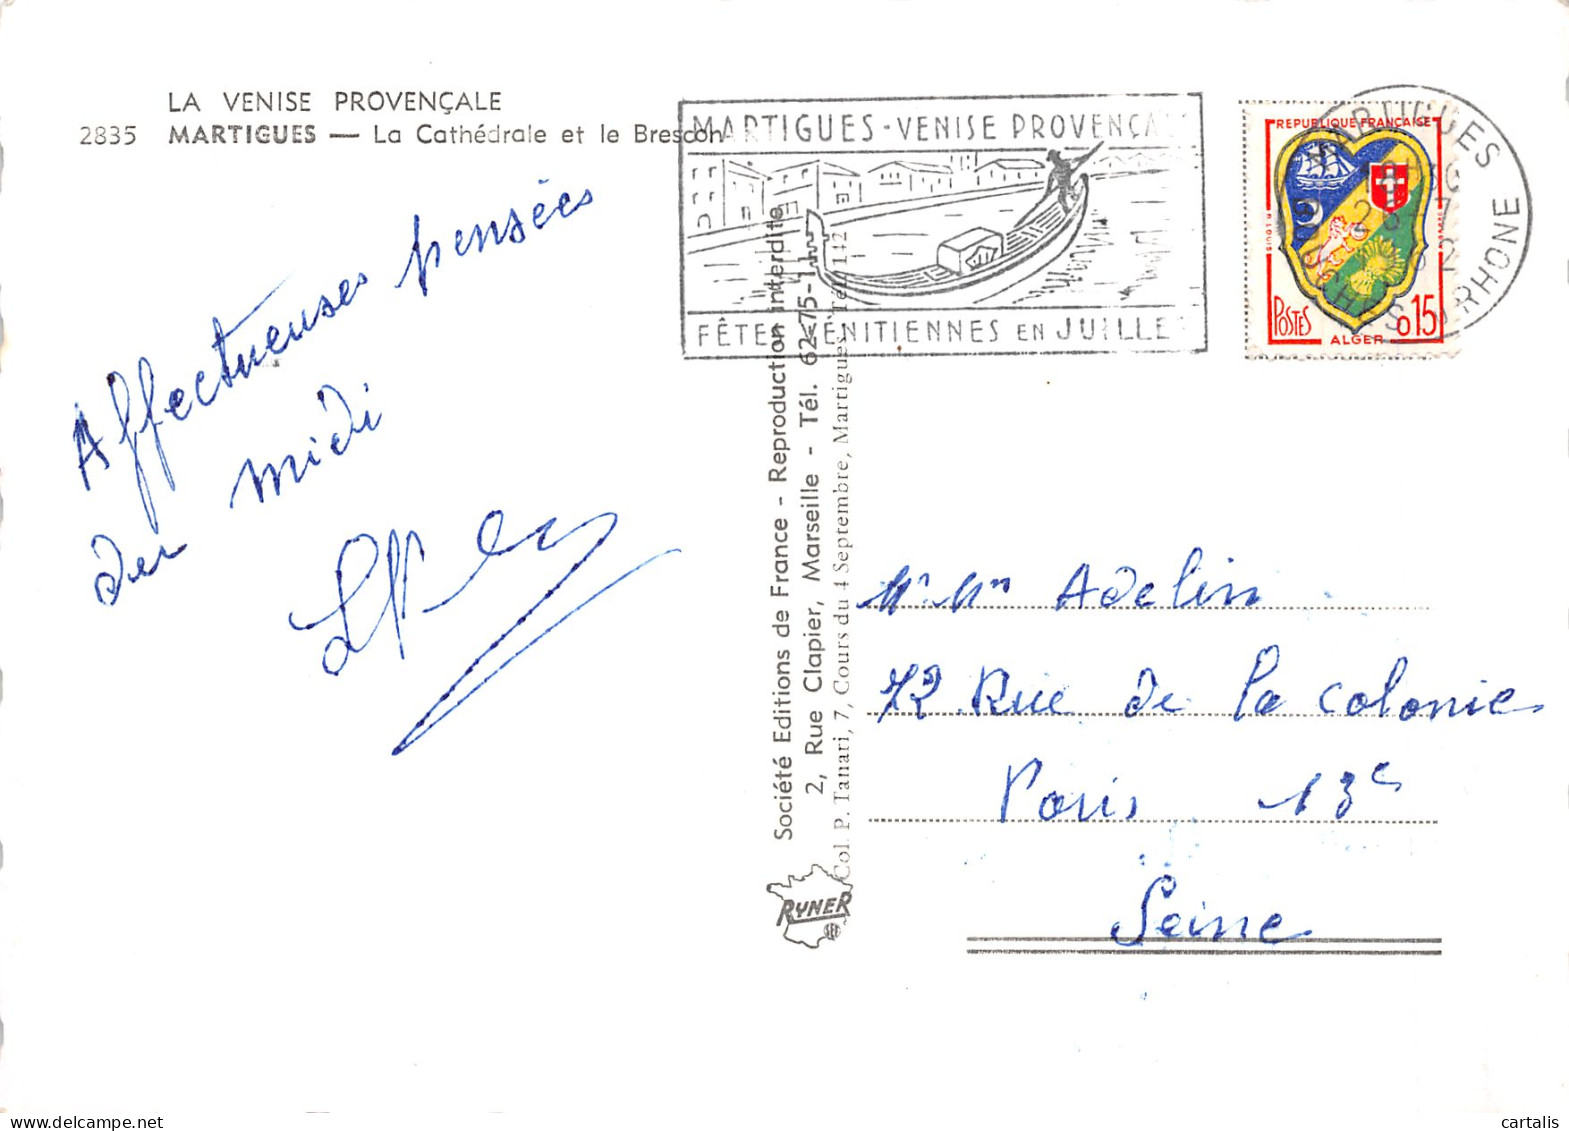 LA VENISE PROVENÇALE
2835 MARTIGUES — La Cathédrale et le Brescon
MARTIGUES - VENISE PROVENÇA
FÊTE VÉNITIENNES EN JUILLE
REPUBLIQUE FRANÇAISE
POSTES
0,15
ALGER
MARTIGUES
BOUCHES DU RHONE
Affectueuses pensées
du midi
Société Editions de France - Reproduction interdite
2, Rue Clapier, Marseille - Tél. 62-75-11
Col. P. Tanari, 7, Cours du 4 Septembre, Martigues, Tél. 142
RYNER
Mr Mm Adelin
72 Rue de la Colonie
Paris 13e
Seine
cartalis